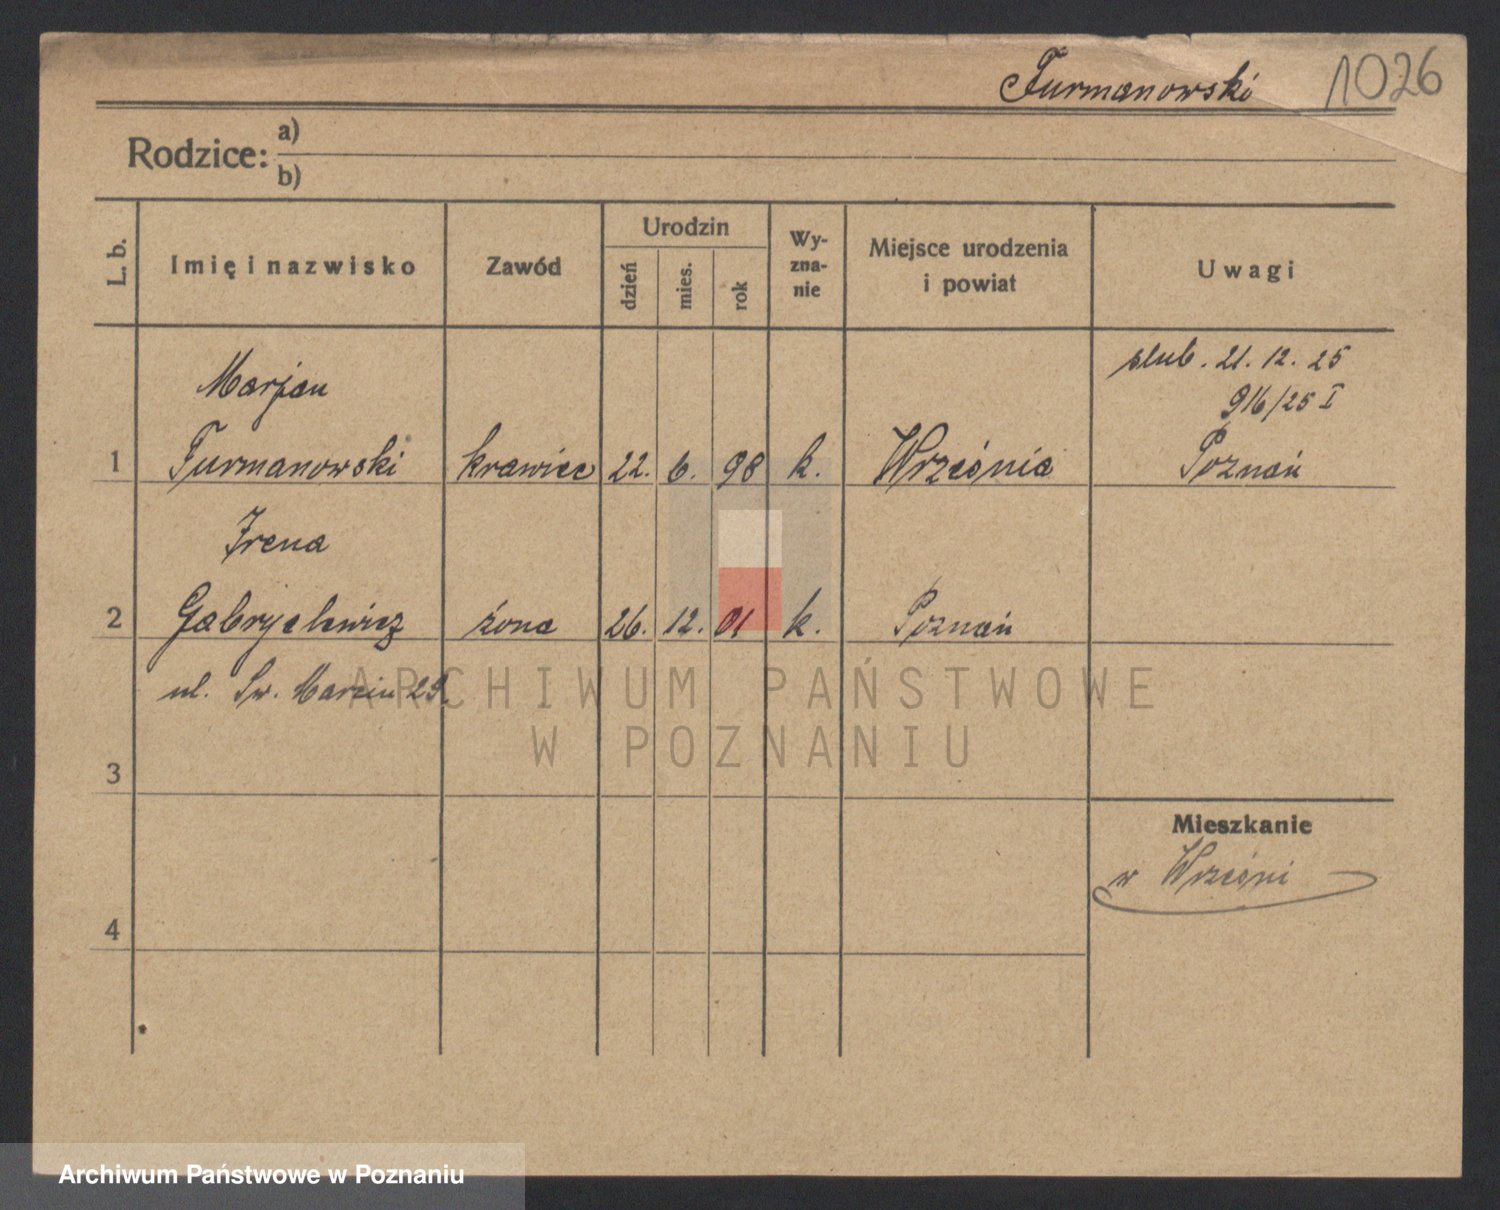 Furmanowski 1026
Rodzice: a)
b)
L. b. Imię i nazwisko Zawód Urodzin dzień mies. rok Wy-zna-nie Miejsce urodzenia i powiat Uwagi
ślub. 21. 12. 25
Marjan 916/25 I
1 Furmanowski krawiec 22. 6. 98 k. Września Poznań
Irena
2 Gabryelewicz żona 26. 12. 01 k. Poznań
ul. Św. Marcin 29.
ARCHIWUM PAŃSTWOWE
W POZNANIU
3
Mieszkanie
w Wrześni
4
Archiwum Państwowe w Poznaniu